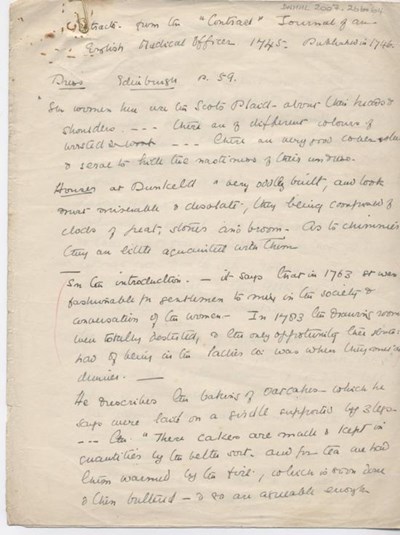 Extracts from the "Contract" Journal of an
English Medical Officer 1745. Published in 1746.
Dress Edinburgh p. 59.
The women here use the Scots Plaid about their heads &
shoulders. --- There are of different colours of
worsted --- There are very good
& serve to hide the nastiness of their undress.
Houses at Dunkeld & very oddly built, and look
most miserable & desolate, they being composed of
clods of peat, stones and broom. As to chimnies
they are little acquainted with them
In the introduction. — it says that in 1763 it was
fashionable for gentlemen to mix in the society &
conversation of the women — In 1783 the drawing rooms
were totally deserted, & the only opportunity
had of being in the ladies co: was when
dinner. —
He describes the baking of oatcakes — which he
says were laid on a girdle supported by 3 legs
--- the "These cakes are made & kept in
quantities by the better sort — and for tea are had
warmed by the fire, which is soon done
& then buttered — & so are agreeable enough